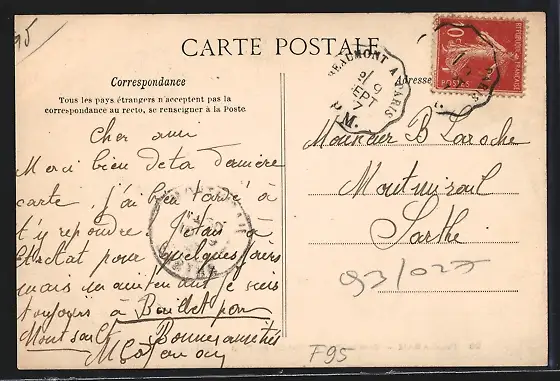 95
CARTE POSTALE
Correspondance
Tous les pays étrangers n'acceptent pas la
correspondance au recto, se renseigner à la Poste.
Cher ami
Merci bien de ta dernière
carte, j'ai bien tardé à
t'y répondre. J'étais à
pour quelques jours
mais maintenant je suis
toujours à Baillet par
Montsoult Bonnes amitiés
BEAUMONT A PARIS
9
SEPT
7
M.
Adresse
RÉPUBLIQUE FRANÇAISE
10
POSTES
Monsieur B Laroche
Montmirail
Sarthe
93/027
F95